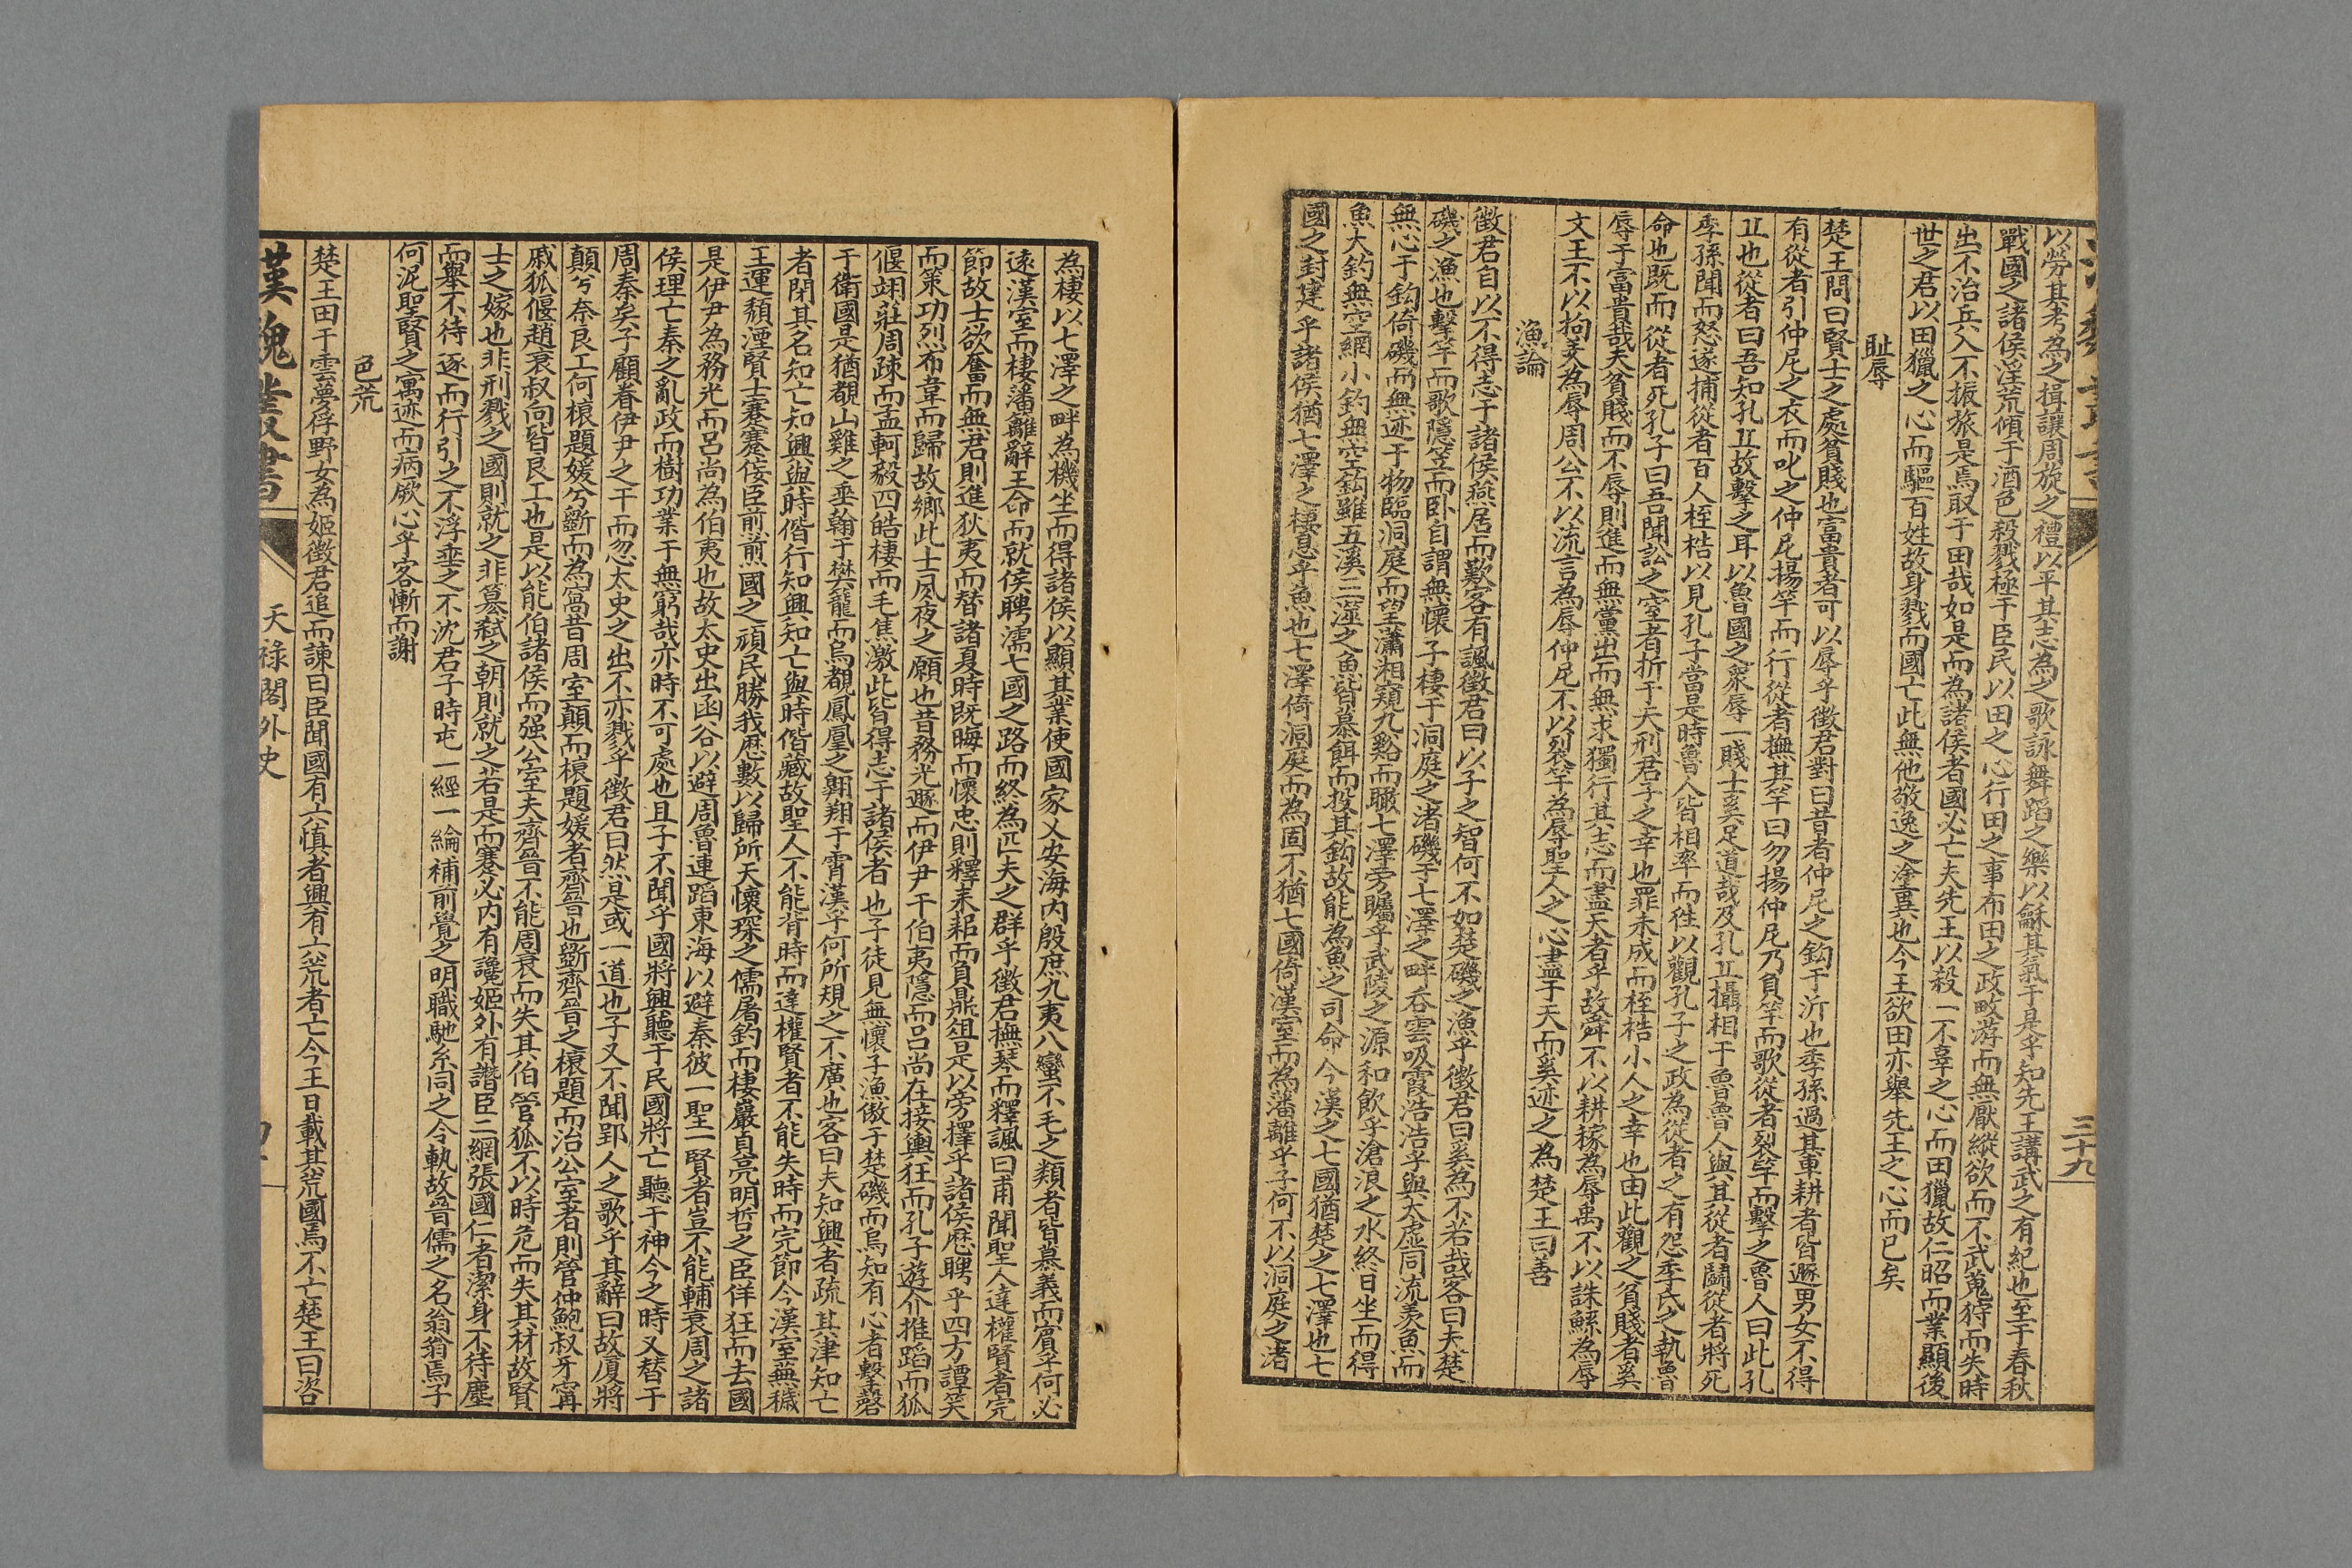 三十九
以勞其考為之揖讓周旋之禮以平其志為之歌詠舞蹈之樂以龢其氣于是乎知先王講武之有紀也至于春秋
戰國之諸侯淫荒傾于酒色殺戮極于臣民以田之心行田之事布田之政畋游而無厭縱欲而不武蒐狩而失時
出不治兵入不振旅是焉取于田哉如是而為諸侯者國必亡夫先王以殺一不辜之心而田獵故仁昭而業顯後
世之君以田獵之心而驅百姓故身戮而國亡此無他敬逸之塗異也今王欲田亦舉先王之心而已矣
耻辱
楚王問曰賢士之處貧賤也富貴者可以辱乎徵君對曰昔者仲尼之鈎于沂也季孫過其車耕者皆遯男女不得
有從者引仲尼之衣而叱之仲尼揚竿而行從者撫其竿曰勿揚仲尼乃負竿而歌從者裂竿而擊之魯人曰此孔
丘也從者曰吾知孔丘故擊之耳以魯國之眾辱一賤士奚足道哉及孔丘攝相于魯魯人與其從者鬬從者將死
季孫聞而怒遂捕從者百人桎梏以見孔子當是時魯人皆相率而徃以觀孔子之政為從者之有怨季氏之執魯
命也既而從者死孔子曰吾聞訟之窒者折于天刑君子之幸也罪未成而桎梏小人之幸也由此觀之貧賤者奚
辱于富貴哉夫貧賤而不辱則進而無黨出而無求獨行其志而盡天者乎故舜不以耕稼為辱禹不以誅鯀為辱
文王不以拘羑為辱周公不以流言為辱仲尼不以裂竿為辱聖人之心盡于天而奚迹之為楚王曰善
漁論
徵君自以不得志于諸侯燕居而歎客有諷徵君曰以子之智何不如楚磯之漁乎徵君曰奚為不若哉客曰夫楚
磯之漁也擊竿而歌隱笠而卧自謂無懷子棲于洞庭之渚磯于七澤之畔吞雲吸霞浩浩乎與太虛同流羨魚而
無心于鈎倚磯而無迹于物臨洞庭而望瀟湘窺九谿而瞰七澤旁矚乎武陵之源和飲乎滄浪之水終日坐而得
魚大釣無空網小釣無空鈎雖五溪三澨之魚皆慕餌而投其鈎故能為魚之司命今漢之七國猶楚之七澤也七
國之封建乎諸侯猶七澤之棲息乎魚也七澤倚洞庭而為固不猶七國倚漢室而為藩離乎子何不以洞庭之渚
為棲以七澤之畔為機坐而得諸侯以顯其業使國家乂安海内殷庶九夷八蠻不毛之類者皆慕義而賓乎何必
遠漢室而棲藩離辭王命而就侯聘濡七國之路而終為匹夫之群乎徵君撫琴而釋諷曰甫聞聖人達權賢者完
節故士欲奮而無君則進狄夷而替諸夏時既晦而懷忠則釋耒耜而負鼎俎是以旁擇乎諸侯歷聘乎四方譚笑
而策功烈布韋而歸故鄉此士夙夜之願也昔務光遯而伊尹干伯夷隱而吕尚在接輿狂而孔子遊介推蹈而狐
偃翊莊周疎而孟軻毅四皓棲而毛焦激此皆得志于諸侯者也子徒見無懷子漁傲于楚磯而烏知有心者擊磬
于衛國是猶覩山雞之垂翰于樊籠而烏覩鳳凰之翺翔于霄漢乎何所規之不廣也客曰夫知興者疏其津知亡
者閉其名知亡知興與時偕行知興知亡與時偕藏故聖人不能背時而達權賢者不能失時而完節今漢室蕪穢
王運頹湮賢士蹇蹇侫臣前煎國之頑民勝我歷數以歸所天懷琛之儒屠釣而棲巖貞亮明哲之臣佯狂而去國
是伊尹為務光而吕尚為伯夷也故太史出函谷以避周魯連蹈東海以避秦彼一聖一賢者豈不能輔衰周之諸
侯理亡秦之亂政而樹功業于無窮哉亦時不可處也且子不聞乎國將興聽于民國將亡聽于神今之時又替于
周秦矣子顧眷伊尹之干而忽太史之出不亦戮乎徵君曰然是或一道也子又不聞郢人之歌乎其辭曰故廈將
顛兮奈良工何榱題媛兮斲而為窩昔周室顛而榱題媛者齊晉也斲齊晉之榱題而治公室者則管仲鮑叔牙甯
戚狐偃趙衰叔向皆良工也是以能伯諸侯而强公室夫齊晉不能周衰而失其伯管狐不以時危而失其材故賢
士之嫁也非刑戮之國則就之非簒弒之朝則就之若是而蹇必内有讒姬外有譖臣二網張國仁者潔身不待塵
而舉不待逐而行引之不浮垂之不沈君子時屯一經一綸補前覺之明職馳糸同之今執故晉儒之名翁翁焉子
何泥聖賢之寓迹而病厥心乎客慚而謝
色荒
楚王田于雲夢俘野女為姬徵君追而諫曰臣聞國有六慎者興有六荒者亡今王日載其荒國焉不亡楚王曰咨
漢魏叢書
天祿閣外史